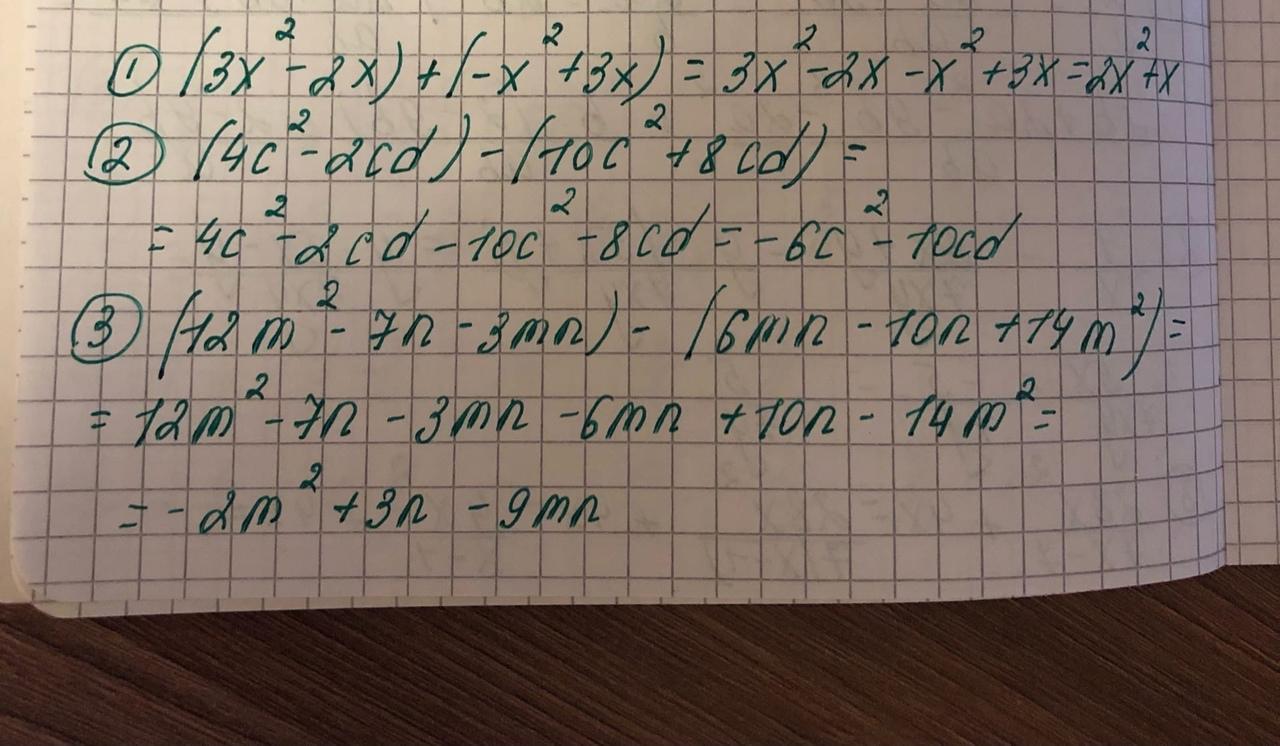 ① (3x² - 2x) + (-x² + 3x) = 3x² - 2x - x² + 3x = 2x² + x
② (4c² - 2cd) - (10c² + 8cd) =
= 4c² - 2cd - 10c² - 8cd = -6c² - 10cd
③ (12m² - 7n - 3mn) - (6mn - 10n + 14m²) =
= 12m² - 7n - 3mn - 6mn + 10n - 14m² =
= -2m² + 3n - 9mn